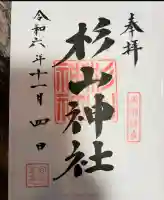 奉拝
杉山神社
令和六年十一月四日